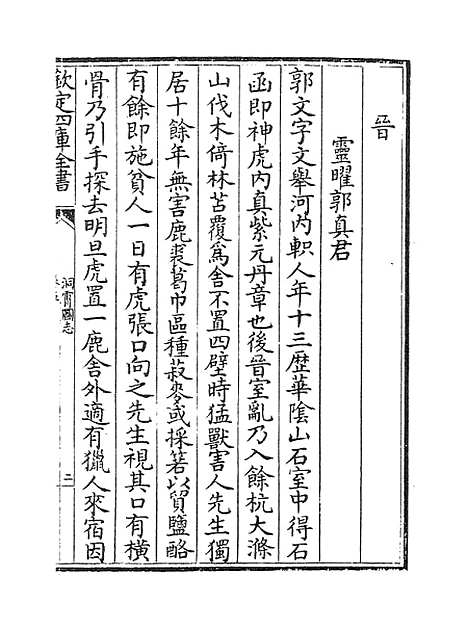 晉
靈曜郭真君
郭文字文舉河內軹人年十三歴華陰山石室中得石
函即神虎內真紫元丹章也後晉室亂乃入餘杭大滌
山伐木倚林苫覆爲舍不置四壁時猛獸害人先生獨
居十餘年無害鹿裘葛巾區種菽麥或採箬以貿鹽酪
有餘即施貧人一日有虎張口向之先生視其口有橫
骨乃引手探去明旦虎置一鹿舍外適有獵人來宿因
欽定四庫全書
洞霄圖志
三